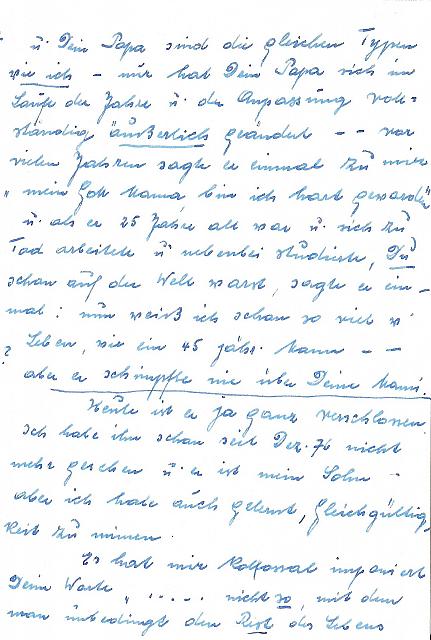 u. Dein Papa sind die gleichen Typen
wie ich – nur hat Dein Papa sich im
Laufe der Jahre u. der Anpassung voll-
ständig "äußerlich geändert – – vor
vielen Jahren sagte er einmal zu mir
"mein Gott Mama bin ich hart geworden"
u. als er 25 Jahre alt war u. sich zu
Tod arbeitete u. nebenbei studierte, Du
schon auf der Welt warst, sagte er ein-
mal: nun weiß ich schon so viel v.
Leben, wie ein 45 jähr. Mann – –
? aber er schimpfte nie über Deine Mami.
Heute ist er ja ganz verschlossen
Ich habe ihn schon seit Dez. 76 nicht
mehr gesehen u. er ist mein Sohn –
aber ich habe auch gelernt, Gleichgültig,
keit zu mimen.
Es hat mir kolossal imponiert
Deine Worte „ ..... nicht so, mit dem
man unbedingt den Rest des Lebens